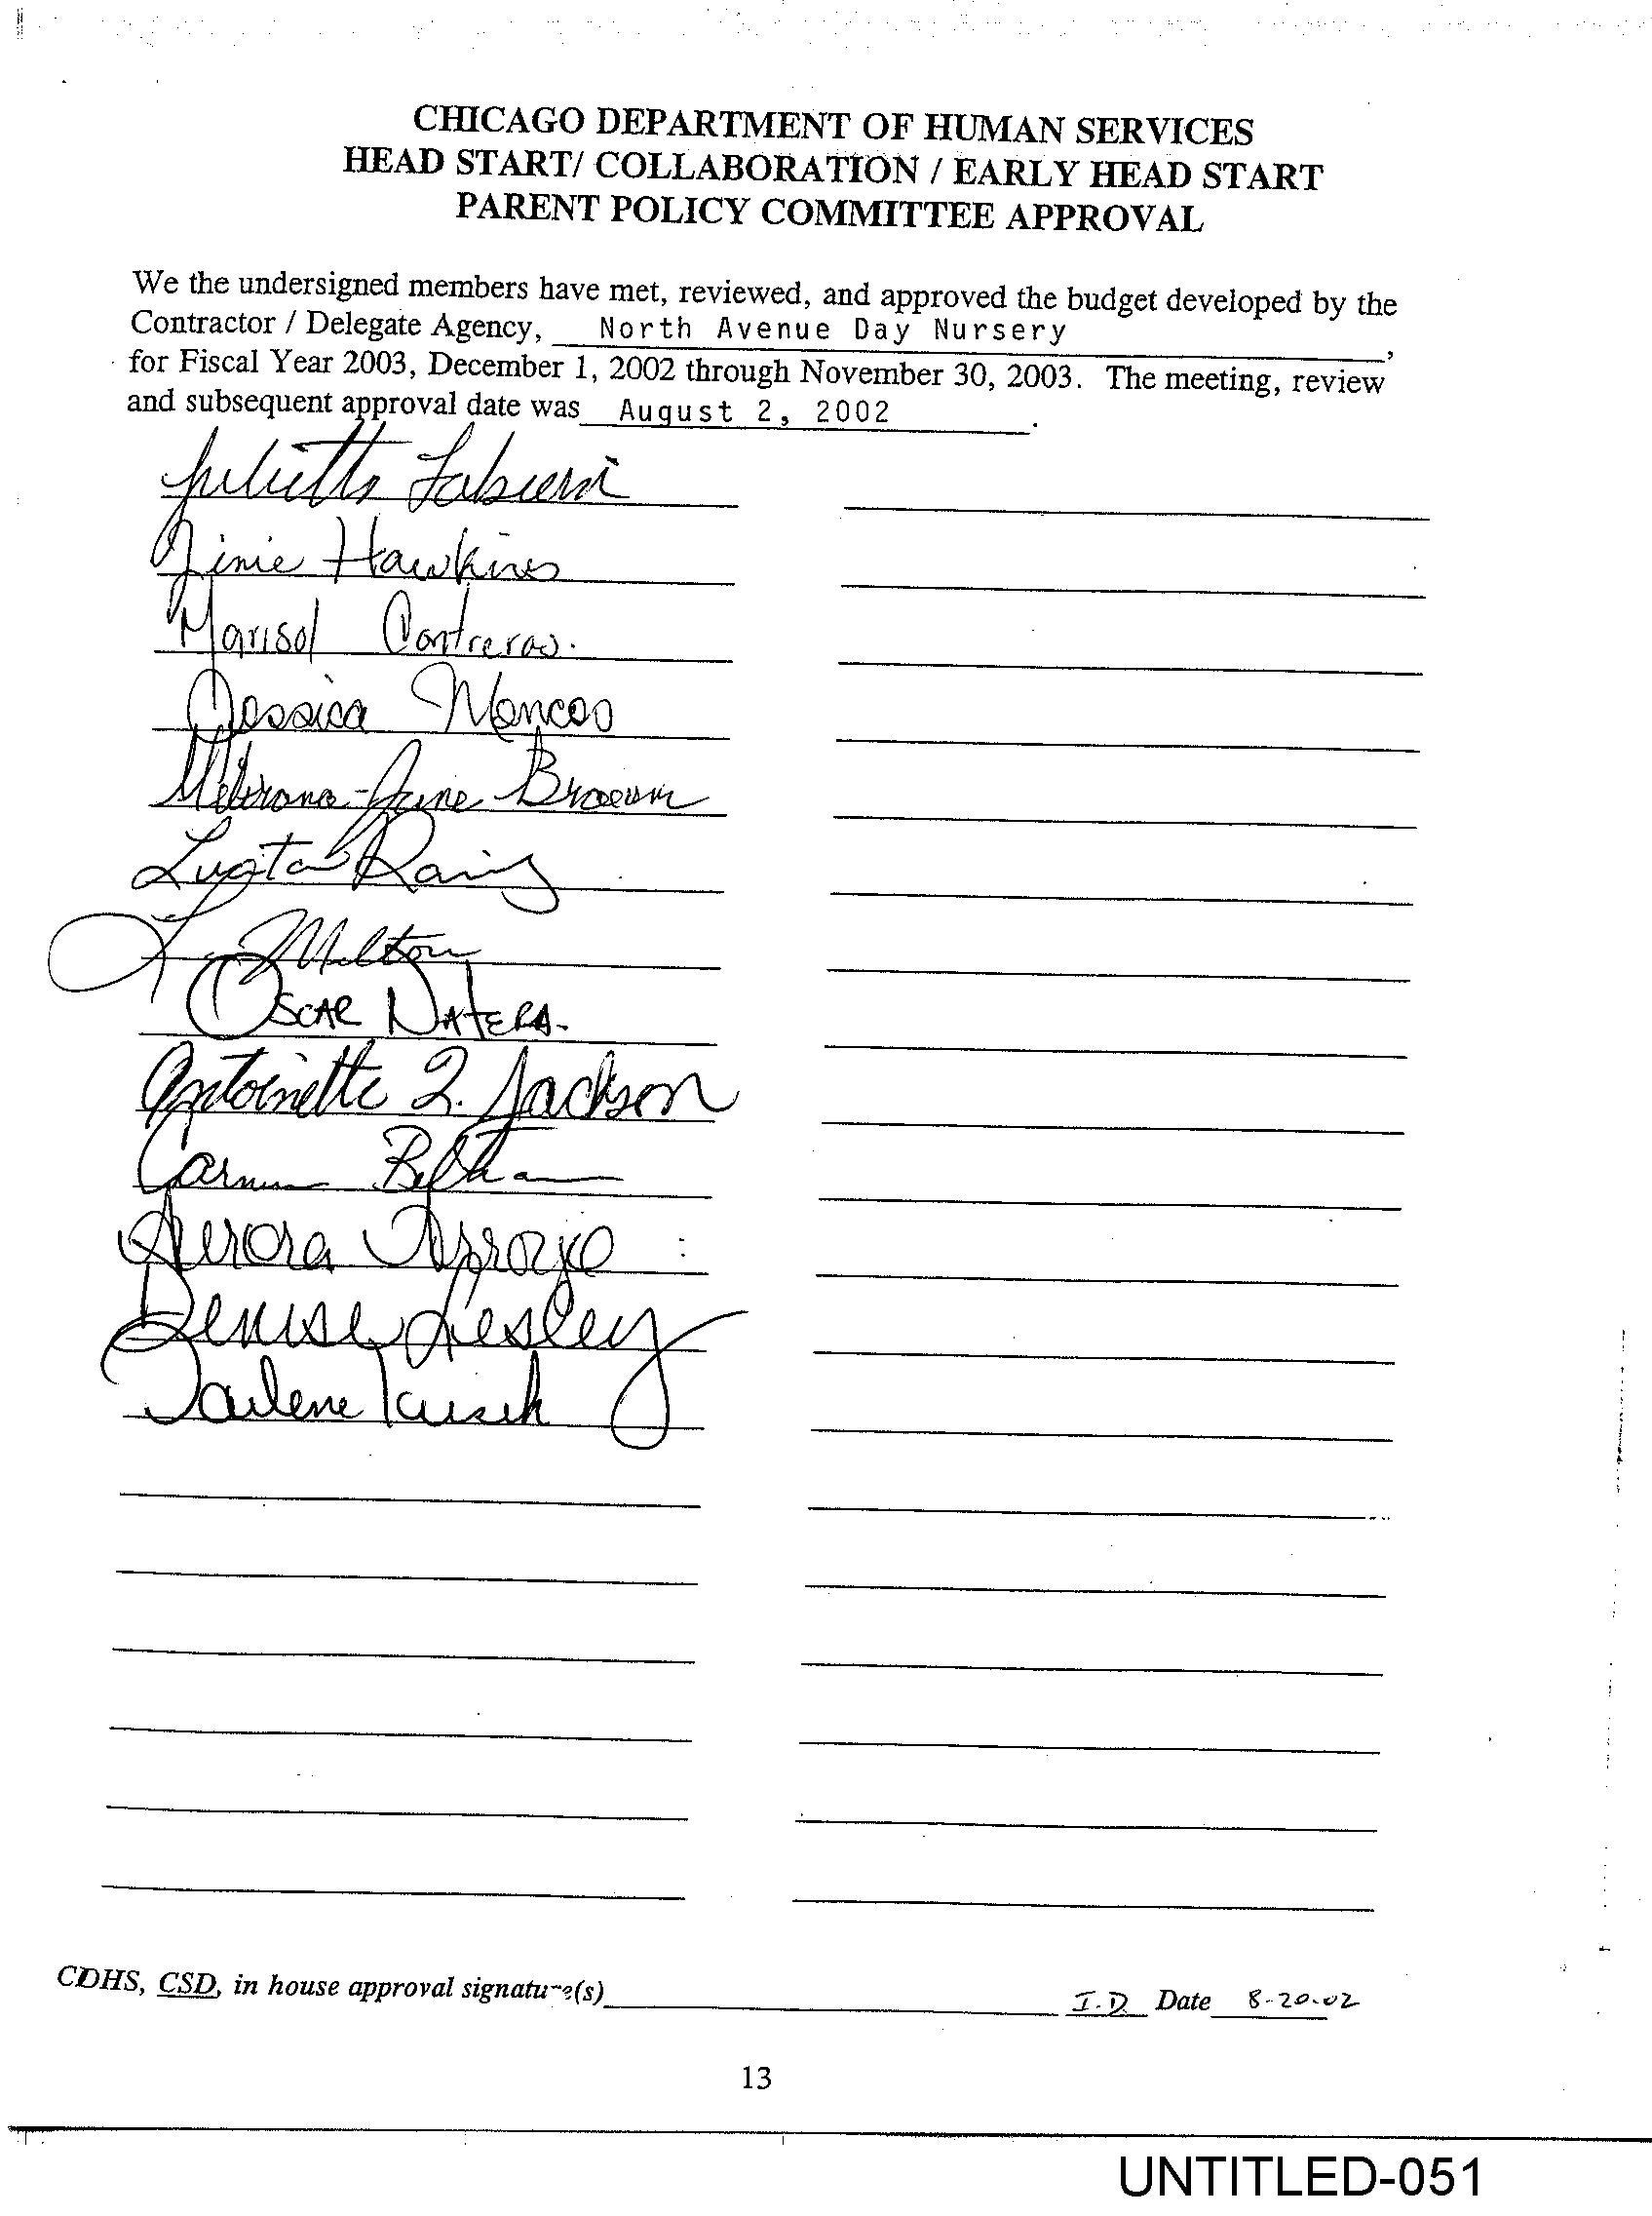 CHICAGO DEPARTMENT OF HUMAN SERVICES
HEAD START/ COLLABORATION / EARLY HEAD START
PARENT POLICY COMMITTEE APPROVAL
We the undersigned members have met, reviewed, and approved the budget developed by the
Contractor / Delegate Agency, North Avenue Day Nursery ,
for Fiscal Year 2003, December 1, 2002 through November 30, 2003. The meeting, review
and subsequent approval date was August 2, 2002 .
Hawkins
Marisol Contreras.
Jessica
June
Milton
OSCAR NATERA.
Antoinette Jackson
Carmen
Arroyo
Denise Lesley
Darlene
CDHS, CSD, in house approval signature(s) I.D. Date 8-20-02
13
UNTITLED-051